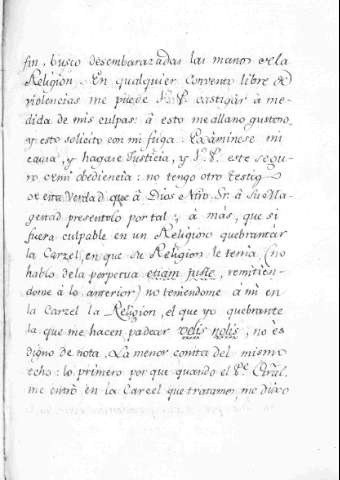 fin, busco desembarazadas las manos de la
Religion. En qualquier Convento libre de
violencias me puede V. P. castigar à me-
dida de mis culpas: à esto me allano gustoso,
y esto solicito con mi fuga. Exâminese mi
causa, y hagase Justicia, y V. P. este segu-
ro de mi obediencia: no tengo otro testig-
de esta verdad que à Dios Ntro. Sr. à Su Ma-
gestad presentolo por tal; à más, que si
fuera culpable en un Religioso quebrantar
la Carzel, en que su Religion le tenia, (no
hablo de la perpetua etiam juste, remitien-
dome à lo anterior) no teniendome à mi en
la Carzel la Religion, el que yo quebrante
la que me hacen padecer velis nolis, no es
digno de nota. La menor contra del mismo
echo: lo primero por que quando el Pe. Gral.
me entró en la Carzel que tratamos, me dixo